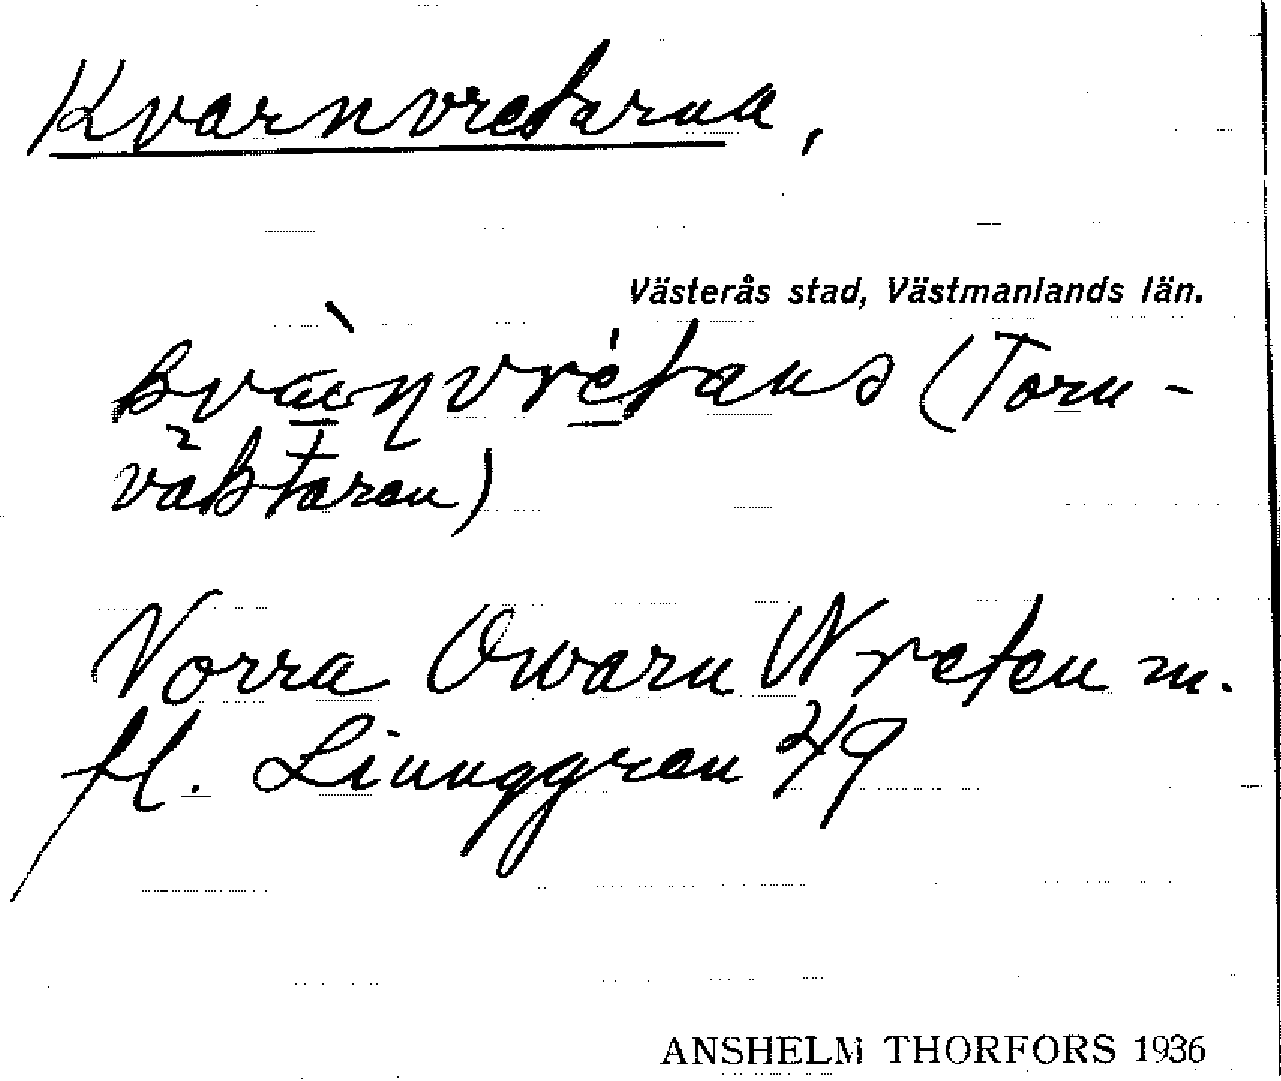 Kvarnvretarna,
Västerås stad, Västmanlands län.
(Torn-
väktaren)
Norra Qwarn Wreten m.
fl. Linnggren 249
ANSHELM THORFORS 1936